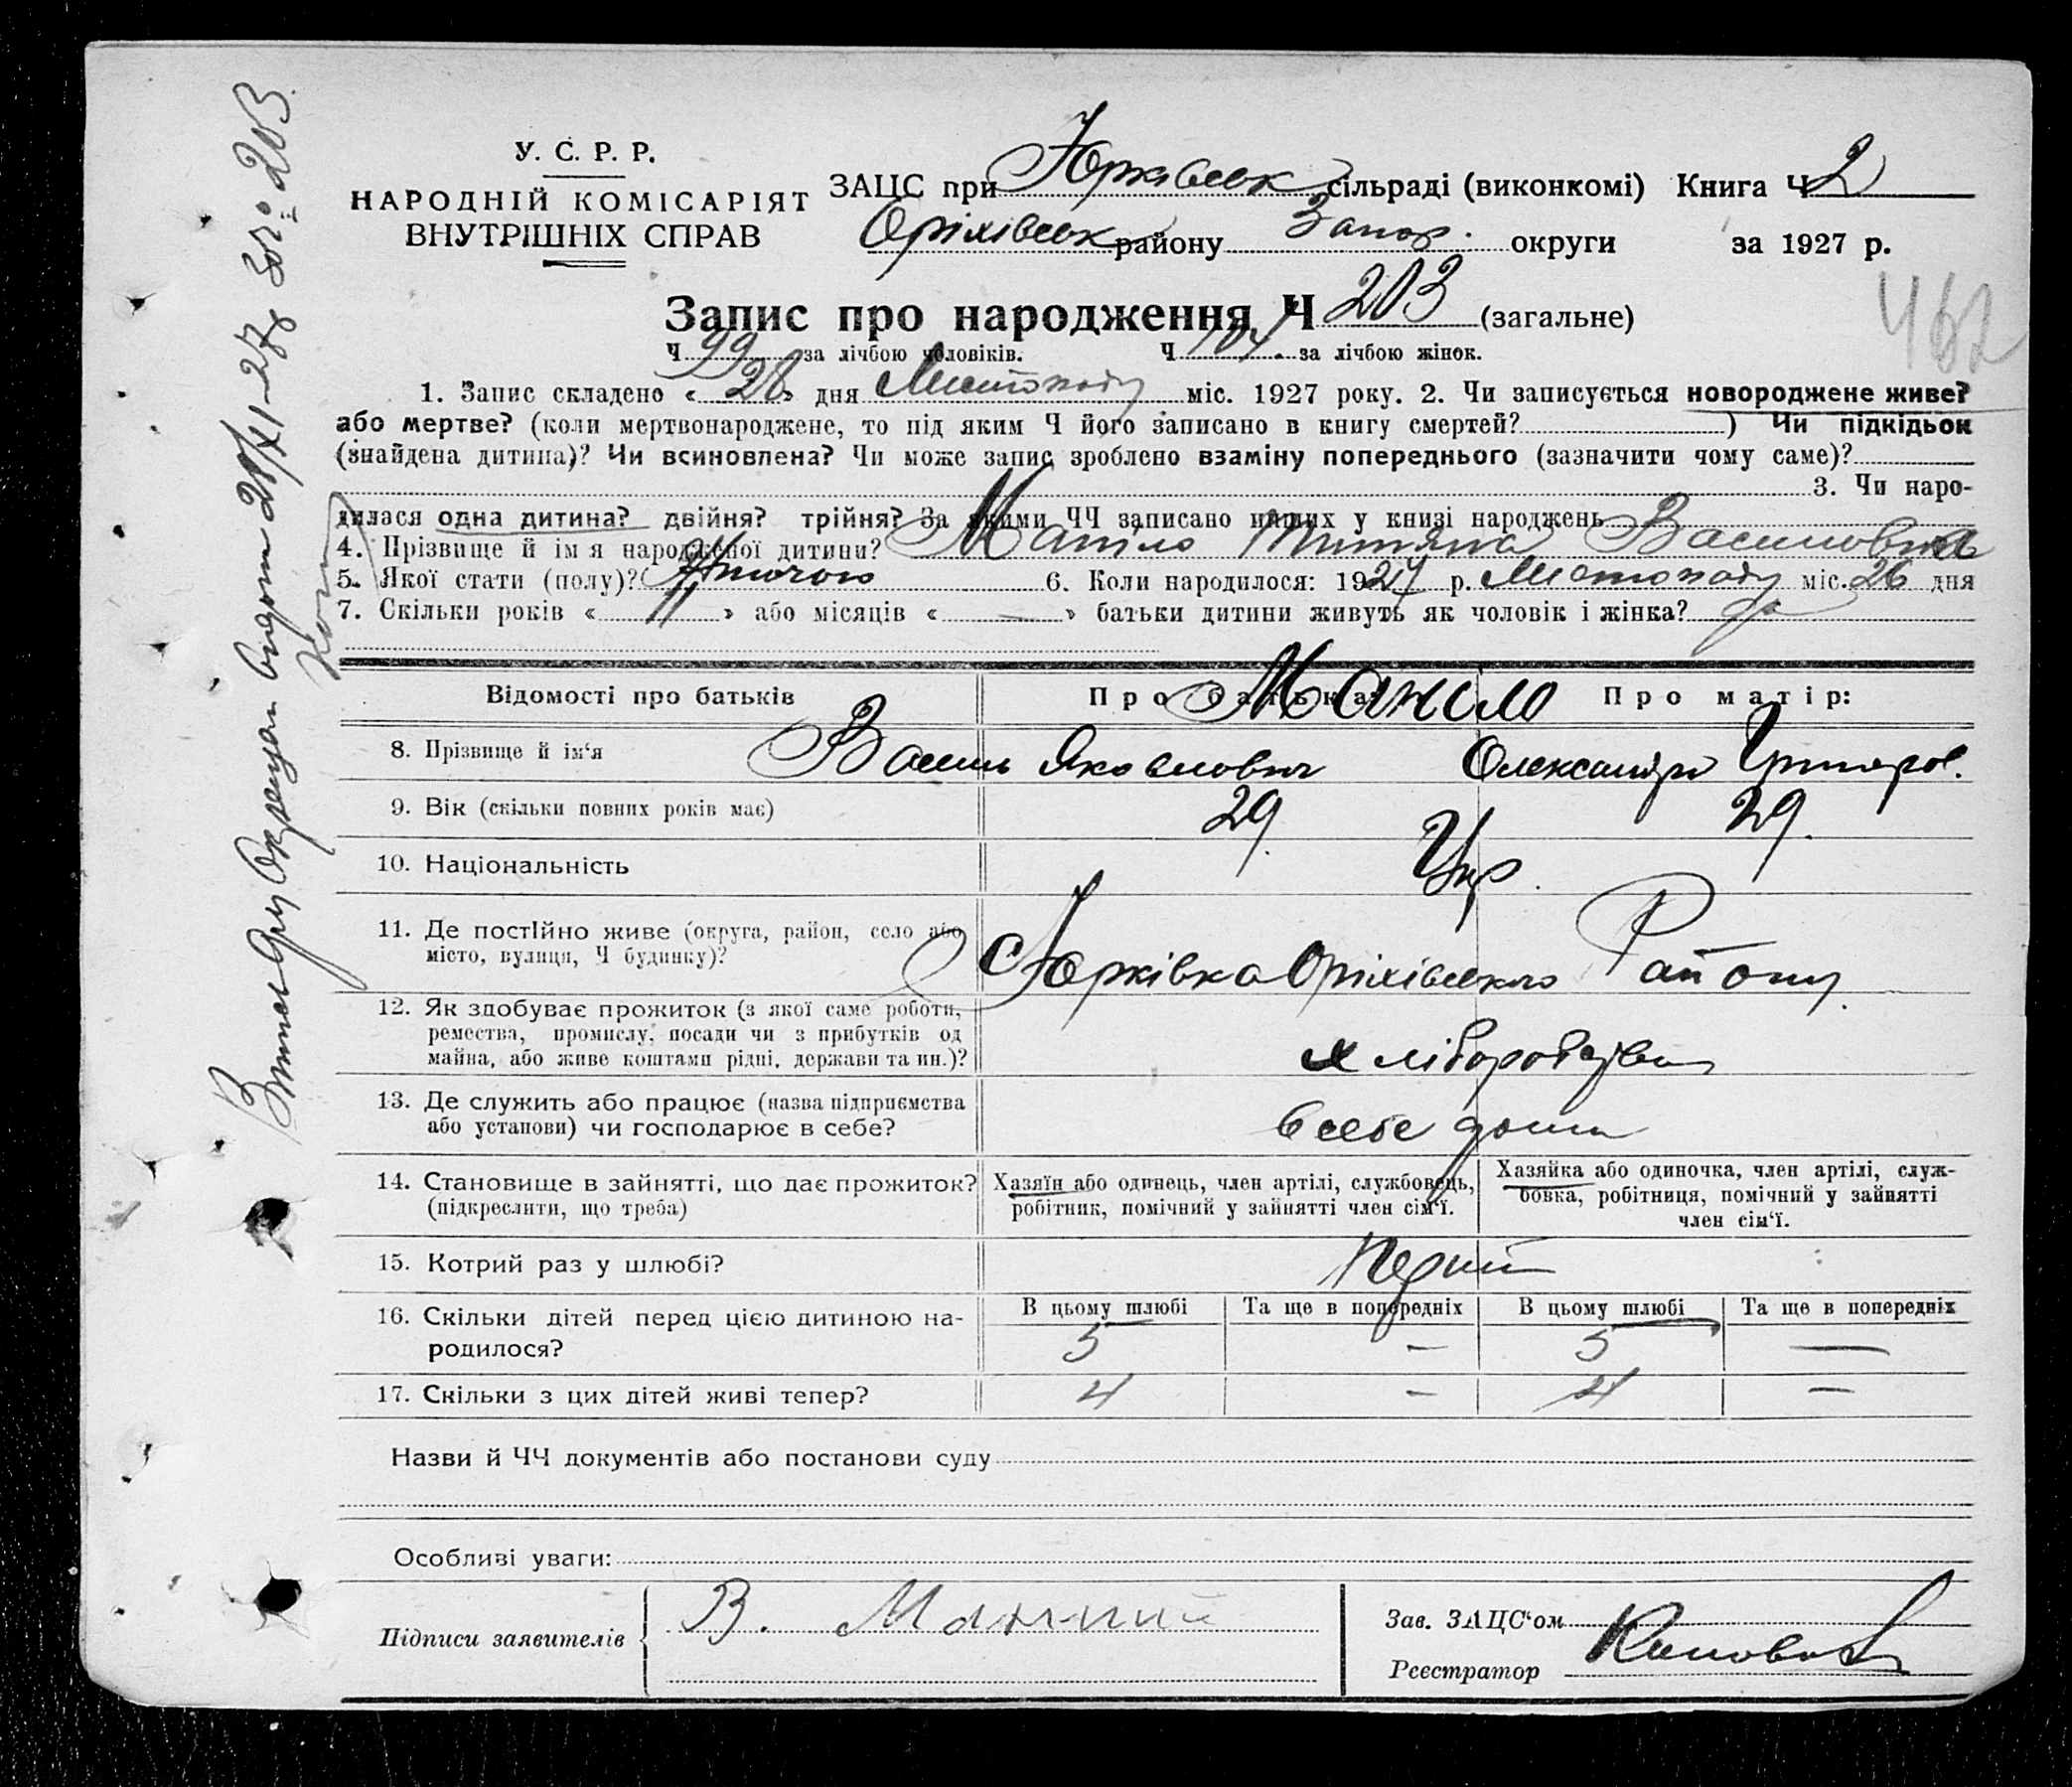 У. С. Р. Р.
НАРОДНІЙ КОМІСАРІЯТ
ВНУТРІШНІХ СПРАВ
ЗАЦС при Юрківськ сільраді (виконкомі) Книга Ч 2
Оріхівськ району Запор. округи за 1927 р.
Запис про народження Ч 203 (загальне)
462
Ч 99 за лічбою чоловіків. Ч 104. за лічбою жінок.
1. Запис складено « 28 » дня Листопаду міс. 1927 року. 2. Чи записується новороджене живе?
або мертве? (коли мертвонароджене, то під яким Ч його записано в книгу смертей? ) Чи підкідьок
(знайдена дитина)? Чи всиновлена? Чи може запис зроблено взаміну попереднього (зазначити чому саме)?
3. Чи наро-
дилася одна дитина? двійня? трійня? За якими ЧЧ записано инших у книзі народжень
4. Прізвище й ім'я народженої дитини? Василовна
5. Якої стати (полу)? Жіночою 6. Коли народилося: 1927 р. Листопаду міс. 26 дня
7. Скільки років « 11 » або місяців « — » батьки дитини живуть як чоловік і жінка? да
Відомості про батьків Про батька: Про матір:
8. Прізвище й ім'я Василь Яковлович Олександра Григоров.
9. Вік (скільки повних років має) 29. 29.
10. Національність Укр.
11. Де постійно живе (округа, район, село або
місто, вулиця, Ч будинку)? с Юрківка Оріхівського Району.
12. Як здобуває прожиток (з якої саме роботи,
ремества, промислу, посади чи з прибутків од
майна, або живе коштами рідні, держави та ин.)?
13. Де служить або працює (назва підприємства
або установи) чи господарює в себе? в себе дома
14. Становище в зайнятті, що дає прожиток?
(підкреслити, що треба)
Хазяїн або одинець, член артілі, службовець,
робітник, помічний у зайнятті член сім'ї.
Хазяйка або одиночка, член артілі, служ-
бовка, робітниця, помічний у зайнятті
член сім'ї.
15. Котрий раз у шлюбі?
В цьому шлюбі Та ще в попередніх В цьому шлюбі Та ще в попередніх
16. Скільки дітей перед цією дитиною на-
родилося? 5 — 5 —
17. Скільки з цих дітей живі тепер? 4 — 4 —
Назви й ЧЧ документів або постанови суду
Особливі уваги:
Підписи заявителів В.
Зав. ЗАЦС'ом
Реєстратор